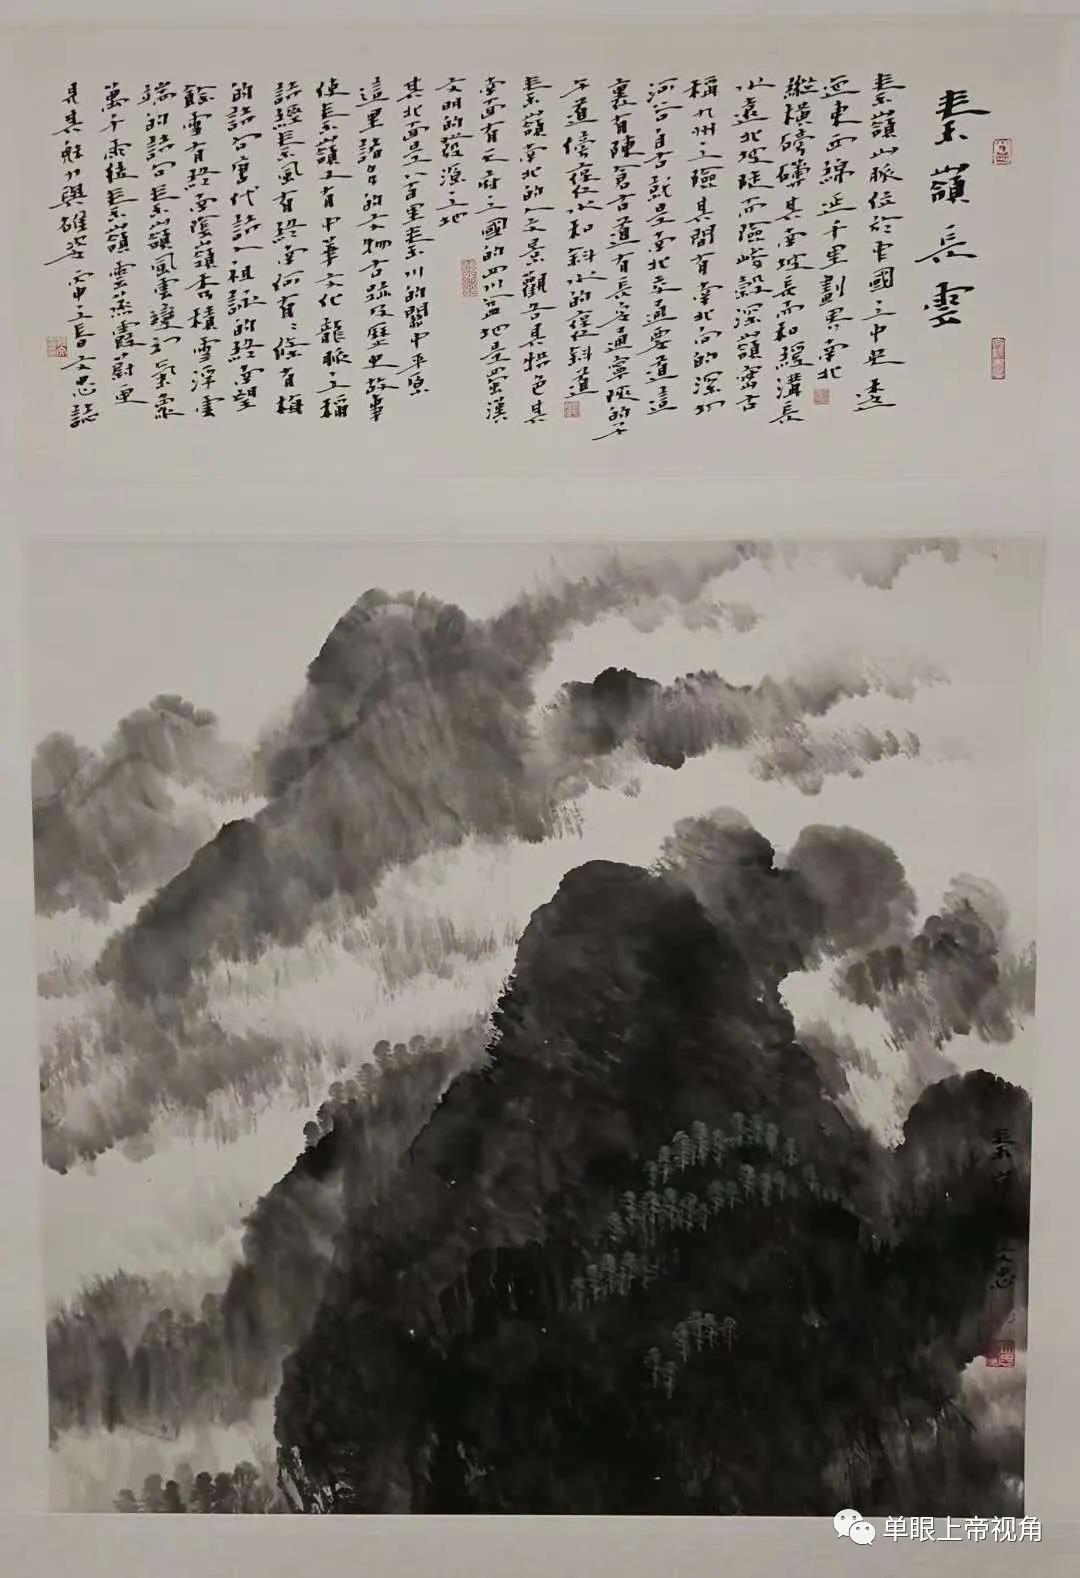 秦嶺長雲
秦嶺山脈位於中國之中央逶
迤東西綿延千里劃界南北
縱橫磅礴其南坡長而和緩溝長
水遠北坡陡而險峻穀深嶺高古
稱九州之險其間有南北向的深切
河谷自古就是南北交通要道這
裏有陳倉古道有長安通寧陝的子
午道傍褒水和斜水的褒斜道
秦嶺南北的人文景觀各具特色其
南面有天府之國的四川盆地是蜀漢
文明的發源之地
其北面是八百里秦川的關中平原
這里諸多的文物古蹟及歷史故事
使秦嶺又有中華文化龍脈之稱
詩經秦風有終南何有々條有梅
的詩句唐代詩人祖詠的終南望
餘雪有終南陰嶺秀積雪浮雲
端的詩句秦嶺風雲變幻氣象
萬千雨後秦嶺雲蒸霞蔚更
見其魅力與雄姿丙申之春文忠誌
秦 文忠
单眼上帝视角